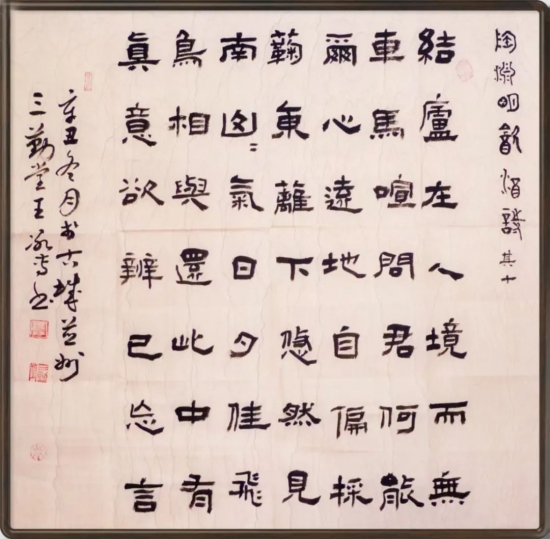 陶淵明飲酒詩 其十
結廬在人境而無
車馬喧問君何能
爾心遠地自偏採
蘜東籬下悠然見
南山〻氣日夕佳飛
鳥相與還此中有
眞意欲辨已忘言
辛丑冬月书古城州
三勤堂王书